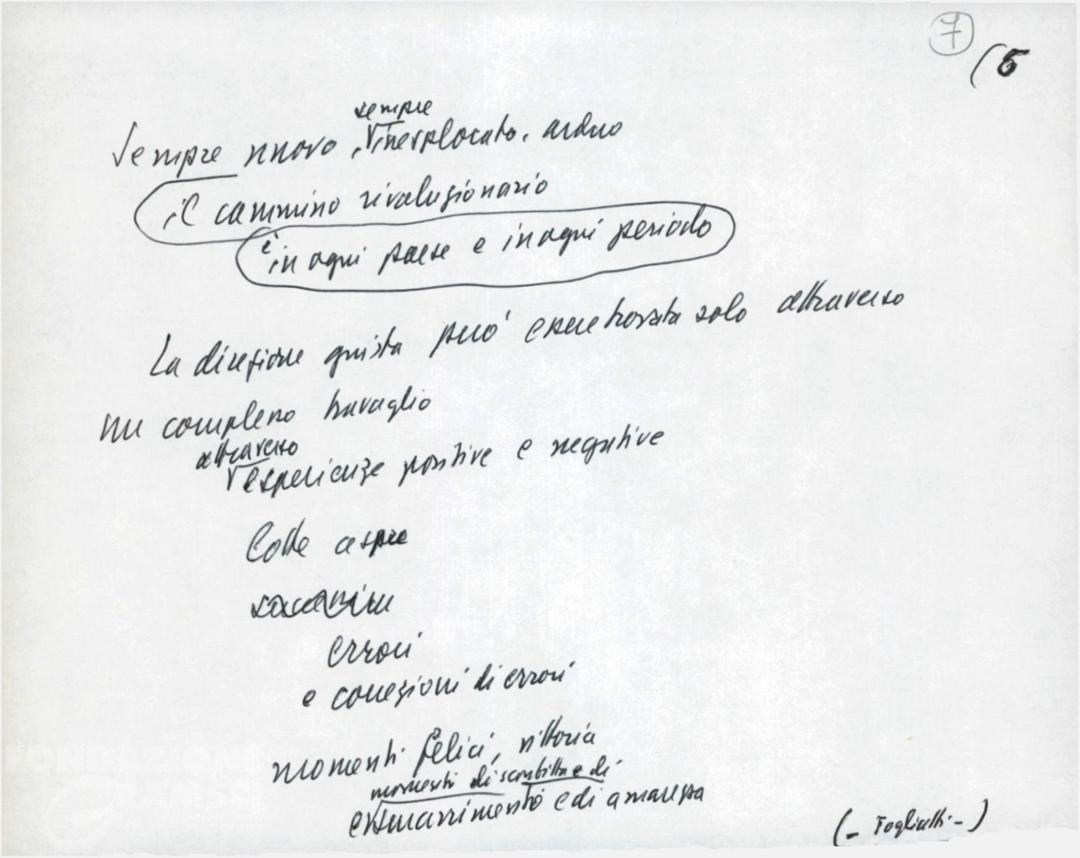 7
(5
sempre
Sempre nuovo, inesplorato, arduo
il cammino rivoluzionario
è in ogni paese e in ogni periodo
La direzione giusta può essere trovata solo attraverso
un complesso travaglio
attraverso
esperienze positive e negative
lotte aspre
errori
e correzioni di errori
momenti felici, vittoria
momenti di sconfitta e di
e smarrimento e di amarezza
(- Togliatti -)
FONDAZIONE